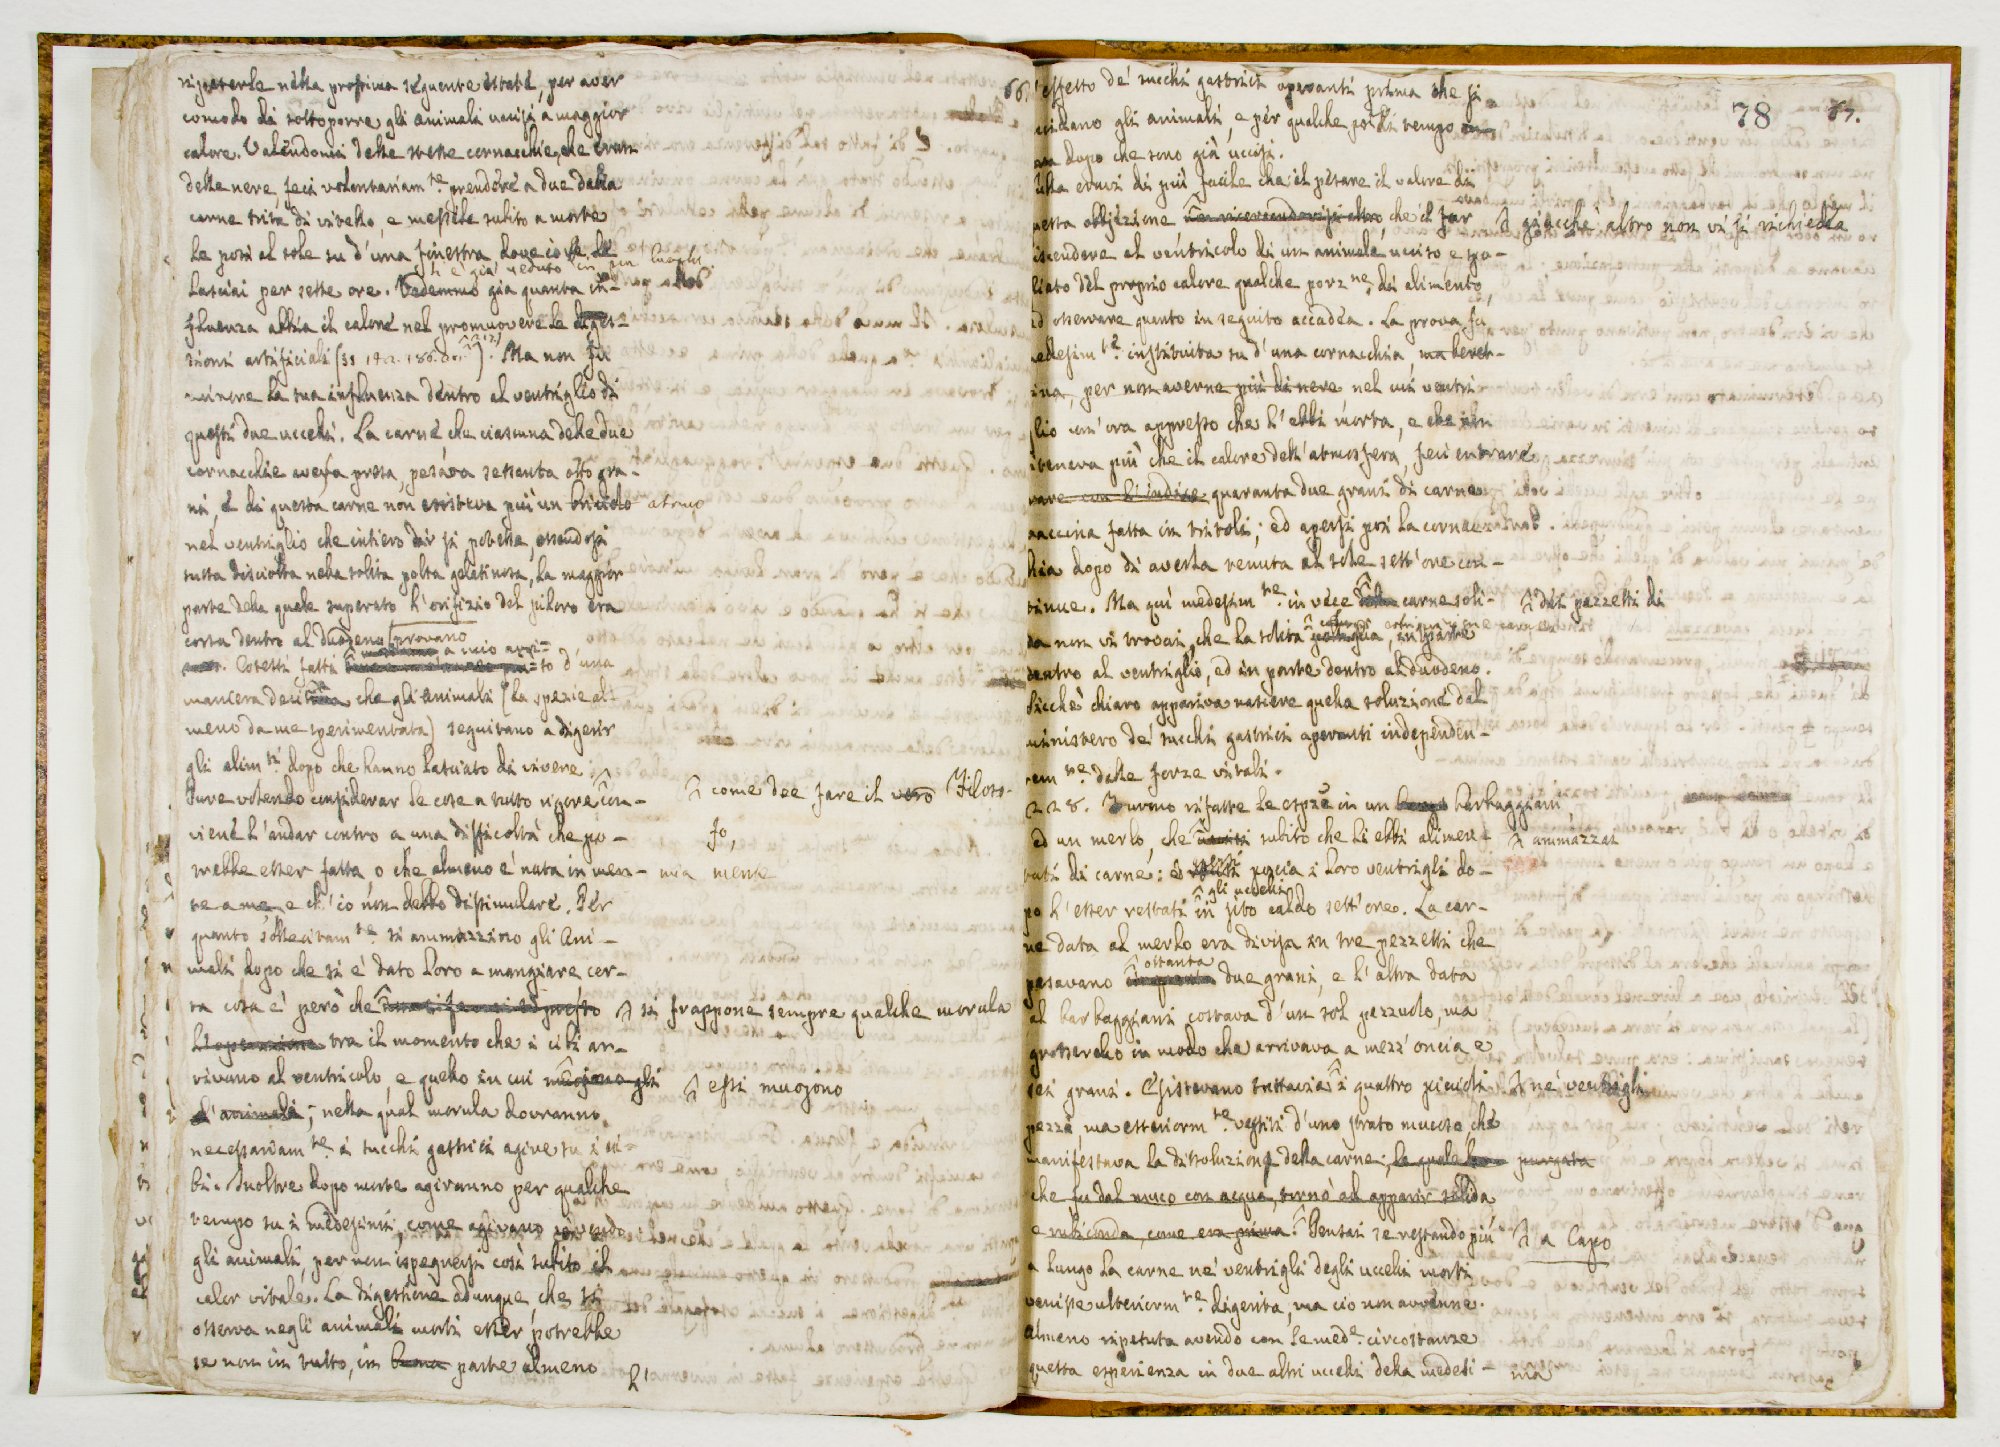 ripeterle nella prossima seguente estate, per aver
comodo di sottoporre gli animali uccisi a maggior
calore. Valendomi delle stesse cornacchie, che eran
delle nere, feci volontariam.te prendere a due della
carne trita di vitello, e messele subito a morte
le posi al sole su d'una finestra dove io le
si è già veduto in più luoghi
lasciai per sette ore. Vedemmo già quanta in-
fluenza abbia il calore nel promuovere le diges-
tioni artifiziali (§§ 142. 186. Ma non fu
minore la sua influenza dentro al ventriglio di
questi due uccelli. La carne che ciascuna delle due
cornacchie aveva presa, pesava sessenta otto gra-
ni, e di questa carne non esisteva più un briciolo
nel ventriglio che intiero dir si potesse, essendosi
tutta disciolta nella solita polta gelatinosa, la maggior
parte della quale superato l'orifizio del piloro era
corsa dentro al duodeno. provano
a mio avvi-
Cotesti fatti d'una
maniera che gli animali (la spezie al-
meno da me sperimentata) seguitano a digerir
gli alim.ti dopo che hanno lasciato di vivere.
Pure volendo considerar le cose a tutto rigore con- come dee fare il vero Filoso-
viene l'andar contro a una difficoltà che po- fo,
trebbe esser fatta o che almeno è nata in men- mia mente
te a me, e ch'io non debbo dissimulare. Per
quanto sollecitam.te si ammazzino gli Ani-
mali dopo che si è dato loro a mangiare cer-
ta cosa è però che si frappone sempre qualche morula
L'operazione tra il momento che i cibi ar-
rivano al ventricolo, e quello in cui muojono gli essi muojono
animali; nella qual morula dovranno
necessariam.te i succhi gastrici agire su i ci-
bi. Inoltre dopo morte agiranno per qualche
tempo su i medesimi, come agivano vivendo
gli animali, per non ispegnersi così subito il
calor vitale. La digestione adunque, che si
osserva negli animali morti esser potrebbe
se non in tutto, in buona parte almeno
l'
66.
78
67.
effetto de' succhi gastrici operanti prima che si
uccidano gli animali, e per qualche poco di tempo
dopo che sono già uccisi.
Nulla eravi di più facile che il pesare il valore di
questa obbjezione che il far giacchè altro non vi si richiedea
discendere al ventricolo di un animale ucciso e spo-
gliato del proprio calore qualche porz.ne di alimento,
ed osservare quanto in seguito accadea. La prova fu
medesim.te instituita su d'una cornacchia ma beret-
tina, per non averne più di nere nel cui ventri-
glio un'ora appresso che l'ebbi morta, e che non
riteneva più che il calore dell'atmosfera, feci entrare
con l'indice quaranta due grani di carne
vaccina fatta in tritoli; ed apersi poi la cornac-
chia dopo di averla tenuta al sole sett'ore con-
tinue. Ma qui medesim.te in vece carne soli- dei pezzetti di
da non vi trovai, che la solita in parte
dentro al ventriglio, ed in parte dentro al duodeno.
Sicchè chiaro appariva nascere quella soluzione dal
ministero de' succhi gastrici operanti independen-
tem.te dalle forze vitali.
228. Furono rifatte le espze in un barbaggiani
ed un merlo, che uccisi subito che li ebbi alimen- ammazzai
tati di carne: e poscia i loro ventrigli do-
gli uccelli
po l'esser restati in sito caldo sett'ore. La car-
ne data al merlo era divisa in tre pezzetti che
ottanta
pesavano due grani, e l'altra data
al barbaggiani costava d'un sol pezzuolo, ma
grossetto in modo che arrivava a mezz'oncia e
sei grani. Esistevano tuttavia i quattro piccioli ne' ventrigli
pezzi, ma esteriorm.te vestiti d'uno strato mucoso, che
manifestava la dissoluzione della carne; la quale purgata
che fu dal muco con acqua, tornò ad apparir solida
e rubiconda, come era prima. Pensai se restando più a Capo
a lungo la carne ne' ventrigli degli uccelli morti
venisse ulteriorm.te digerita, ma ciò non avvenne.
Almeno ripetuta avendo con le med.e circostanze
questa esperienza in due altri uccelli della medesi-
ma